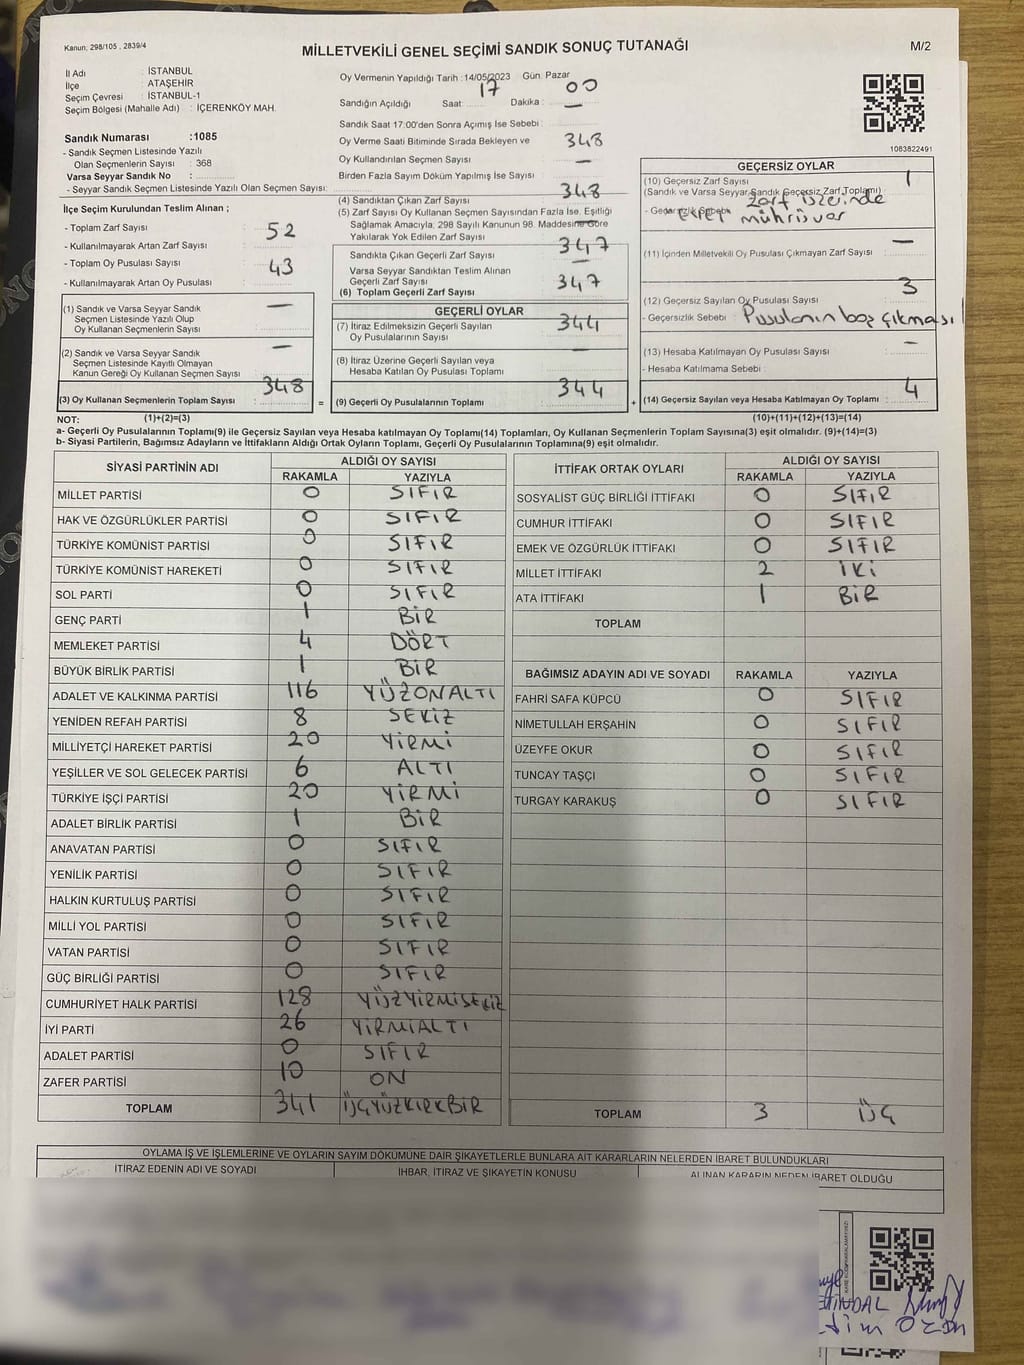 Kanun; 298/105 , 2839/4
MİLLETVEKİLİ GENEL SEÇİMİ SANDIK SONUÇ TUTANAĞI
M/2
İl Adı : İSTANBUL
İlçe : ATAŞEHİR
Seçim Çevresi : İSTANBUL-1
Seçim Bölgesi (Mahalle Adı) : İÇERENKÖY MAH.
Sandık Numarası :1085
- Sandık Seçmen Listesinde Yazılı
Olan Seçmenlerin Sayısı : 368
Varsa Seyyar Sandık No :
- Seyyar Sandık Seçmen Listesinde Yazılı Olan Seçmen Sayısı:
İlçe Seçim Kurulundan Teslim Alınan ;
- Toplam Zarf Sayısı
- Kullanılmayarak Artan Zarf Sayısı : 52
- Toplam Oy Pusulası Sayısı
- Kullanılmayarak Artan Oy Pusulası : 43
(1) Sandık ve Varsa Seyyar Sandık
Seçmen Listesinde Yazılı Olup
Oy Kullanan Seçmenlerin Sayısı : —
(2) Sandık ve Varsa Seyyar Sandık
Seçmen Listesinde Kayıtlı Olmayan
Kanun Gereği Oy Kullanan Seçmen Sayısı : —
(3) Oy Kullanan Seçmenlerin Toplam Sayısı : 348
Oy Vermenin Yapıldığı Tarih :14/05/2023 Gün: Pazar
Sandığın Açıldığı Saat: 17 Dakika : 00
Sandık Saat 17:00'den Sonra Açımış İse Sebebi : —
Oy Verme Saati Bitiminde Sırada Bekleyen ve
Oy Kullandırılan Seçmen Sayısı : 348
Birden Fazla Sayım Döküm Yapılmış İse Sayısı : —
(4) Sandıktan Çıkan Zarf Sayısı : 348
(5) Zarf Sayısı Oy Kullanan Seçmen Sayısından Fazla İse, Eşitliği
Sağlamak Amacıyla; 298 Sayılı Kanunun 98. Maddesine Göre
Yakılarak Yok Edilen Zarf Sayısı : —
Sandıkta Çıkan Geçerli Zarf Sayısı : 347
Varsa Seyyar Sandıktan Teslim Alınan
Geçerli Zarf Sayısı : —
(6) Toplam Geçerli Zarf Sayısı : 347
GEÇERLİ OYLAR
(7) İtiraz Edilmeksizin Geçerli Sayılan
Oy Pusulalarının Sayısı : 344
(8) İtiraz Üzerine Geçerli Sayılan veya
Hesaba Katılan Oy Pusulası Toplamı : —
= (9) Geçerli Oy Pusulalarının Toplamı : 344 +
1083822491
GEÇERSİZ OYLAR
(10) Geçersiz Zarf Sayısı : 1
(Sandık ve Varsa Seyyar Sandık Geçersiz Zarf Toplamı)
- Geçersizlik Sebebi : Zarf üzerinde
mührü var
(11) İçinden Milletvekili Oy Pusulası Çıkmayan Zarf Sayısı : —
(12) Geçersiz Sayılan Oy Pusulası Sayısı : 3
- Geçersizlik Sebebi : Pusulanın boş çıkması
(13) Hesaba Katılmayan Oy Pusulası Sayısı : —
- Hesaba Katılmama Sebebi :
(14) Geçersiz Sayılan veya Hesaba Katılmayan Oy Toplamı : 4
NOT: (1)+(2)=(3) (10)+(11)+(12)+(13)=(14)
a- Geçerli Oy Pusulalarının Toplamı(9) ile Geçersiz Sayılan veya Hesaba katılmayan Oy Toplamı(14) Toplamları, Oy Kullanan Seçmenlerin Toplam Sayısına(3) eşit olmalıdır. (9)+(14)=(3)
b- Siyasi Partilerin, Bağımsız Adayların ve İttifakların Aldığı Ortak Oyların Toplamı, Geçerli Oy Pusulalarının Toplamına(9) eşit olmalıdır.
SİYASİ PARTİNİN ADI ALDIĞI OY SAYISI
RAKAMLA YAZIYLA
MİLLET PARTİSİ 0 SIFIR
HAK VE ÖZGÜRLÜKLER PARTİSİ 0 SIFIR
TÜRKİYE KOMÜNİST PARTİSİ 0 SIFIR
TÜRKİYE KOMÜNİST HAREKETİ 0 SIFIR
SOL PARTİ 0 SIFIR
GENÇ PARTİ 1 BİR
MEMLEKET PARTİSİ 4 DÖRT
BÜYÜK BİRLİK PARTİSİ 1 BİR
ADALET VE KALKINMA PARTİSİ 116 YÜZONALTI
YENİDEN REFAH PARTİSİ 8 SEKİZ
MİLLİYETÇİ HAREKET PARTİSİ 20 YİRMİ
YEŞİLLER VE SOL GELECEK PARTİSİ 6 ALTI
TÜRKİYE İŞÇİ PARTİSİ 20 YİRMİ
ADALET BİRLİK PARTİSİ 1 BİR
ANAVATAN PARTİSİ 0 SIFIR
YENİLİK PARTİSİ 0 SIFIR
HALKIN KURTULUŞ PARTİSİ 0 SIFIR
MİLLİ YOL PARTİSİ 0 SIFIR
VATAN PARTİSİ 0 SIFIR
GÜÇ BİRLİĞİ PARTİSİ 0 SIFIR
CUMHURİYET HALK PARTİSİ 128 YÜZYİRMİSEKİZ
İYİ PARTİ 26 YİRMİALTI
ADALET PARTİSİ 0 SIFIR
ZAFER PARTİSİ 10 ON
TOPLAM 341 ÜÇYÜZKIRKBİR
İTTİFAK ORTAK OYLARI ALDIĞI OY SAYISI
RAKAMLA YAZIYLA
SOSYALİST GÜÇ BİRLİĞİ İTTİFAKI 0 SIFIR
CUMHUR İTTİFAKI 0 SIFIR
EMEK VE ÖZGÜRLÜK İTTİFAKI 0 SIFIR
MİLLET İTTİFAKI 2 İKİ
ATA İTTİFAKI 1 BİR
TOPLAM
BAĞIMSIZ ADAYIN ADI VE SOYADI RAKAMLA YAZIYLA
FAHRİ SAFA KÜPCÜ 0 SIFIR
NİMETULLAH ERŞAHİN 0 SIFIR
ÜZEYFE OKUR 0 SIFIR
TUNCAY TAŞÇI 0 SIFIR
TURGAY KARAKUŞ 0 SIFIR
TOPLAM 3 ÜÇ
OYLAMA İŞ VE İŞLEMLERİNE VE OYLARIN SAYIM DÖKÜMÜNE DAİR ŞİKAYETLERLE BUNLARA AİT KARARLARIN NELERDEN İBARET BULUNDUKLARI
İTİRAZ EDENİN ADI VE SOYADI İHBAR, İTİRAZ VE ŞİKAYETİN KONUSU ALINAN KARARIN NEDEN İBARET OLDUĞU